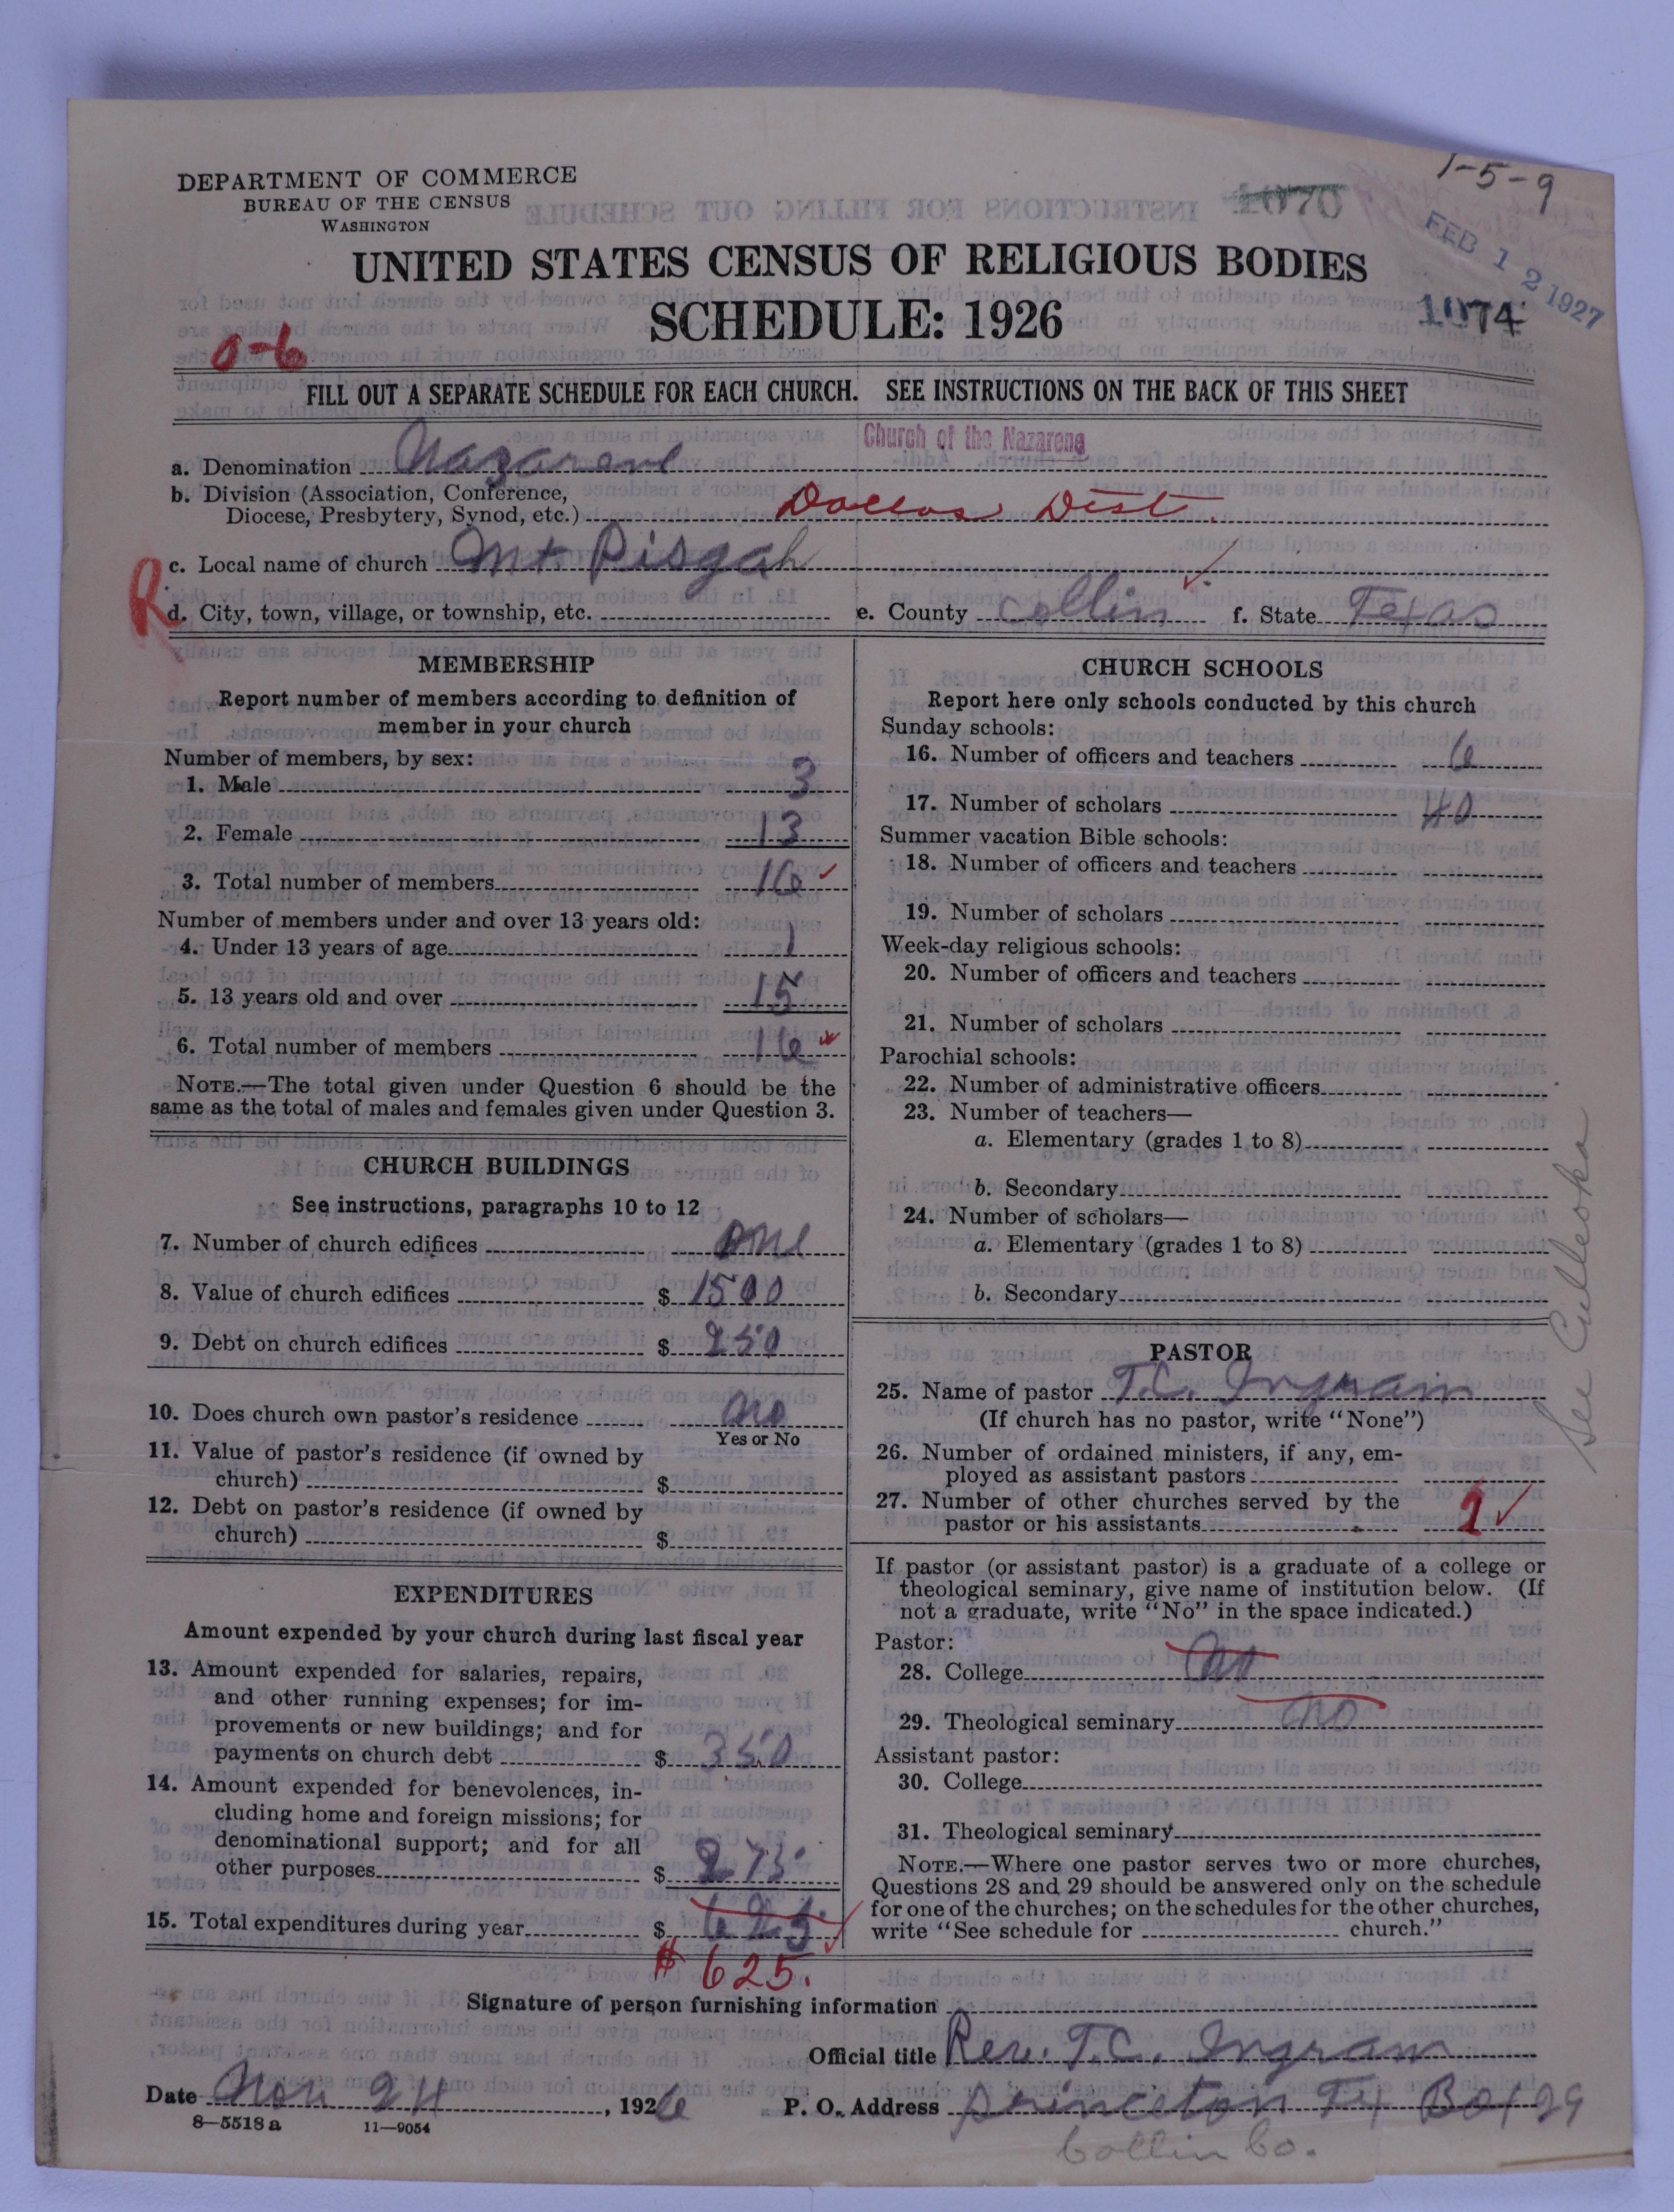 1-5-9
DEPARTMENT OF COMMERCE
BUREAU OF THE CENSUS
WASHINGTON
1070
FEB 12 1927
UNITED STATES CENSUS OF RELIGIOUS BODIES
SCHEDULE: 1926
1074
0-6
FILL OUT A SEPARATE SCHEDULE FOR EACH CHURCH. SEE INSTRUCTIONS ON THE BACK OF THIS SHEET
Church of the Nazarene
a. Denomination Nazarene
b. Division (Association, Conference,
Diocese, Presbytery, Synod, etc.) Dallas Dist.
c. Local name of church Mt Pisgah
R
d. City, town, village, or township, etc. e. County Collin f. State Texas
MEMBERSHIP
Report number of members according to definition of
member in your church
Number of members, by sex:
1. Male 3
2. Female 13
3. Total number of members 16
Number of members under and over 13 years old:
4. Under 13 years of age 1
5. 13 years old and over 15
6. Total number of members 16
NOTE.—The total given under Question 6 should be the
same as the total of males and females given under Question 3.
CHURCH BUILDINGS
See instructions, paragraphs 10 to 12
7. Number of church edifices one
8. Value of church edifices $ 1500
9. Debt on church edifices $ 250
10. Does church own pastor's residence no
Yes or No
11. Value of pastor's residence (if owned by
church) $
12. Debt on pastor's residence (if owned by
church) $
EXPENDITURES
Amount expended by your church during last fiscal year
13. Amount expended for salaries, repairs,
and other running expenses; for im-
provements or new buildings; and for
payments on church debt $ 350
14. Amount expended for benevolences, in-
cluding home and foreign missions; for
denominational support; and for all
other purposes $ 275
15. Total expenditures during year $ 625
$ 625.
CHURCH SCHOOLS
Report here only schools conducted by this church
Sunday schools:
16. Number of officers and teachers 6
17. Number of scholars 40
Summer vacation Bible schools:
18. Number of officers and teachers
19. Number of scholars
Week-day religious schools:
20. Number of officers and teachers
21. Number of scholars
Parochial schools:
22. Number of administrative officers
23. Number of teachers—
a. Elementary (grades 1 to 8)
b. Secondary
24. Number of scholars—
a. Elementary (grades 1 to 8)
b. Secondary
See Culleoka
PASTOR
25. Name of pastor T.C. Ingram
(If church has no pastor, write "None")
26. Number of ordained ministers, if any, em-
ployed as assistant pastors
27. Number of other churches served by the
pastor or his assistants 1
If pastor (or assistant pastor) is a graduate of a college or
theological seminary, give name of institution below. (If
not a graduate, write "No" in the space indicated.)
Pastor:
28. College no
29. Theological seminary no
Assistant pastor:
30. College
31. Theological seminary
NOTE.—Where one pastor serves two or more churches,
Questions 28 and 29 should be answered only on the schedule
for one of the churches; on the schedules for the other churches,
write "See schedule for church."
Signature of person furnishing information
Official title Rev. T.C. Ingram
Date Nov 24, 1926 P. O. Address Princeton Tx Box 29
8—5518a 11—9054
Collin Co.